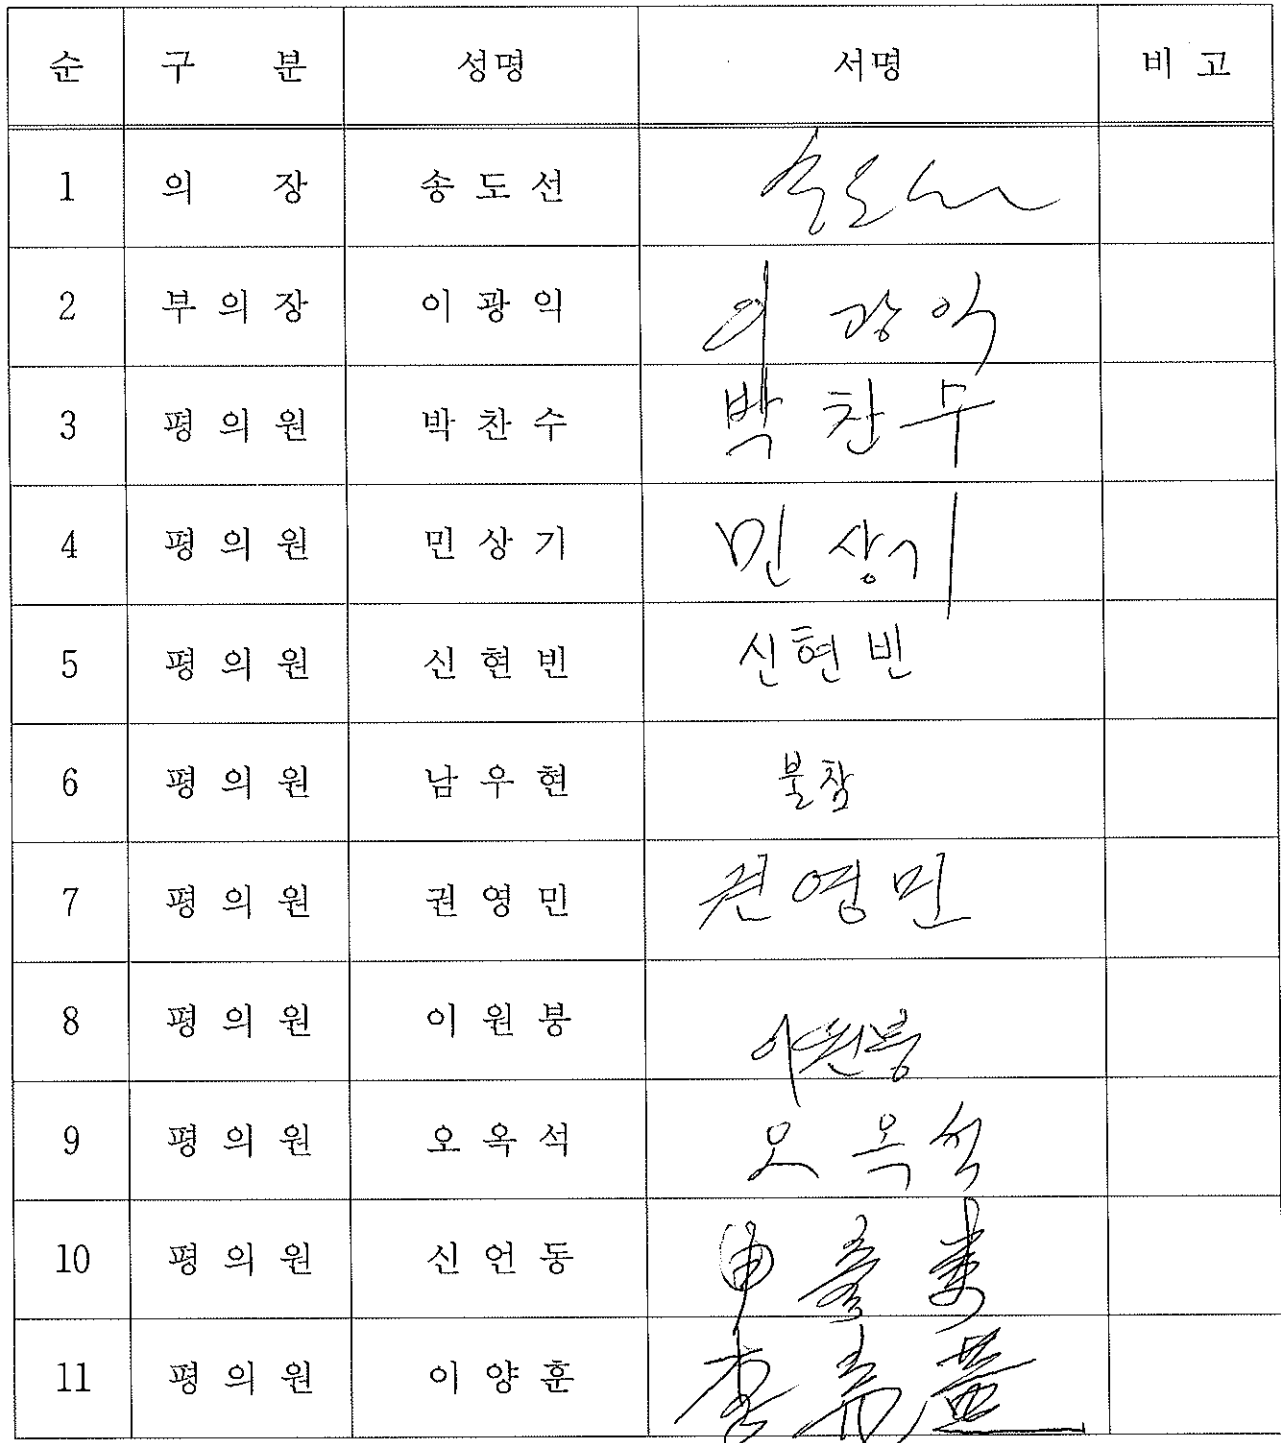 순 구 분 성명 서명 비 고
1 의 장 송 도 선 송도선
2 부 의 장 이 광 익 이 광 익
3 평 의 원 박 찬 수 박 찬 수
4 평 의 원 민 상 기 민 상 기
5 평 의 원 신 현 빈 신 현 빈
6 평 의 원 남 우 현 불참
7 평 의 원 권 영 민 권 영 민
8 평 의 원 이 원 붕 이원붕
9 평 의 원 오 옥 석 오 옥 석
10 평 의 원 신 언 동 申
11 평 의 원 이 양 훈 李